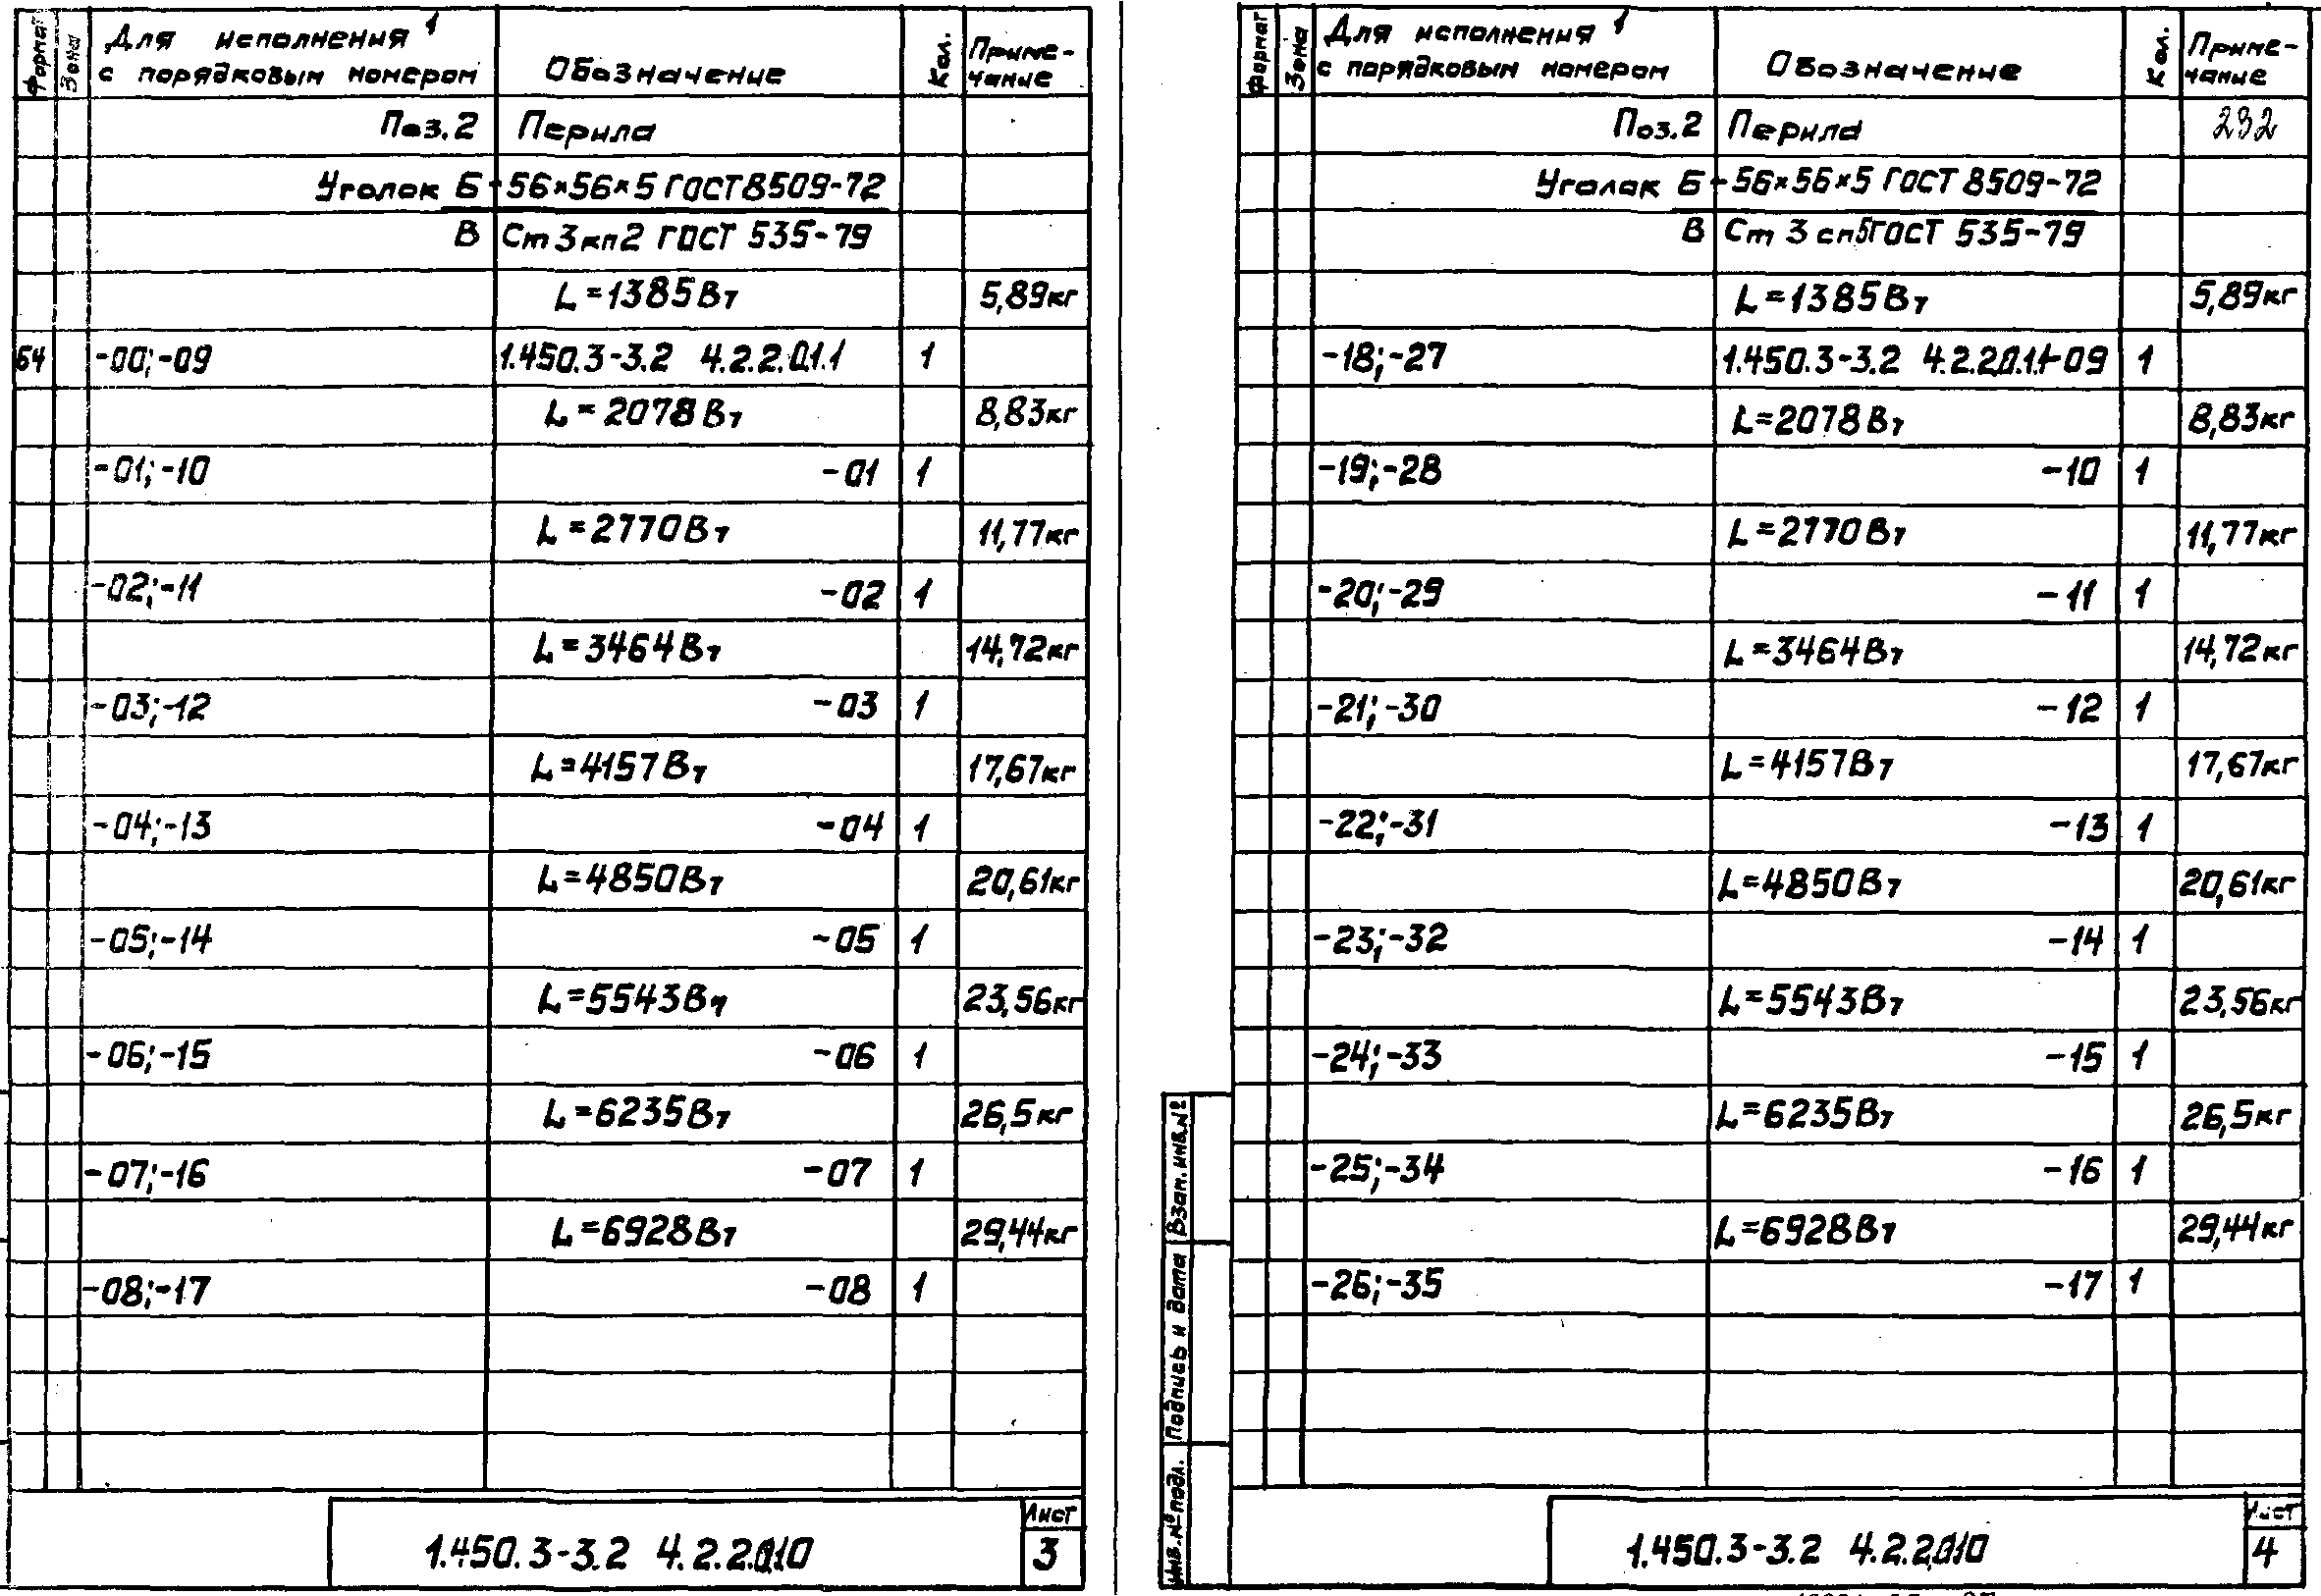 Формат Зона Для исполнения 1 с порядковым номером Обозначение Кол. Приме-чание
Поз.2 Перила
Уголок Б-56×56×5 ГОСТ 8509-72
В Ст3кп2 ГОСТ 535-79
L=1385Вт 5,89кг
Б4 -00;-09 1.450.3-3.2 4.2.2.0.1.1 1
L=2078Вт 8,83кг
-01;-10 -01 1
L=2770Вт 11,77кг
-02;-11 -02 1
L=3464Вт 14,72кг
-03;-12 -03 1
L=4157Вт 17,67кг
-04;-13 -04 1
L=4850Вт 20,61кг
-05;-14 -05 1
L=5543Вт 23,56кг
-06;-15 -06 1
L=6235Вт 26,5кг
-07;-16 -07 1
L=6928Вт 29,44кг
-08;-17 -08 1
1.450.3-3.2 4.2.2.0.1.0
Лист
3
Формат Зона Для исполнения 1 с порядковым номером Обозначение Кол. Приме-чание
Поз.2 Перила 232
Уголок Б-56×56×5 ГОСТ 8509-72
В Ст3сп5 ГОСТ 535-79
L=1385Вт 5,89кг
-18;-27 1.450.3-3.2 4.2.2.0.1.1-09 1
L=2078Вт 8,83кг
-19;-28 -10 1
L=2770Вт 11,77кг
-20;-29 -11 1
L=3464Вт 14,72кг
-21;-30 -12 1
L=4157Вт 17,67кг
-22;-31 -13 1
L=4850Вт 20,61кг
-23;-32 -14 1
L=5543Вт 23,56кг
-24;-33 -15 1
L=6235Вт 26,5кг
-25;-34 -16 1
L=6928Вт 29,44кг
-26;-35 -17 1
Взам. инв.№
Подпись и дата
Инв.№ подл.
1.450.3-3.2 4.2.2.0.1.0
Лист
4